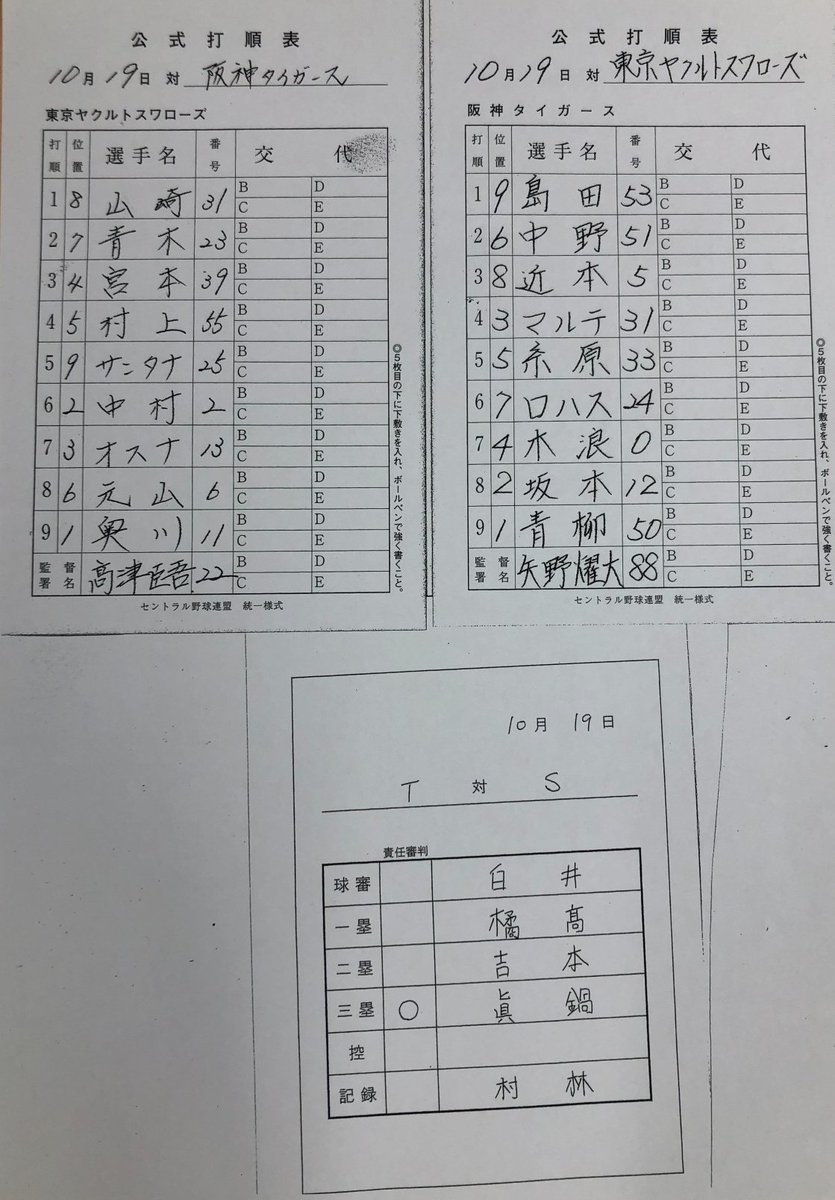 公式打順表
10月19日 対 阪神タイガース
東京ヤクルトスワローズ
打順 位置 選手名 番号 交代
1 8 山崎 31 B D C E
2 7 青木 23 B D C E
3 4 宮本 39 B D C E
4 5 村上 55 B D C E
5 9 サンタナ 25 B D C E
6 2 中村 2 B D C E
7 3 オスナ 13 B D C E
8 6 元山 6 B D C E
9 1 奥川 11 B D C E
監督署名 高津臣吾 22 B D C E
セントラル野球連盟 統一様式
◎5枚目の下に下敷きを入れ、ボールペンで強く書くこと。
公式打順表
10月19日 対 東京ヤクルトスワローズ
阪神タイガース
打順 位置 選手名 番号 交代
1 9 島田 53 B D C E
2 6 中野 51 B D C E
3 8 近本 5 B D C E
4 3 マルテ 31 B D C E
5 5 糸原 33 B D C E
6 7 ロハス 24 B D C E
7 4 木浪 0 B D C E
8 2 坂本 12 B D C E
9 1 青柳 50 B D C E
監督署名 矢野燿大 88 B D C E
セントラル野球連盟 統一様式
◎5枚目の下に下敷きを入れ、ボールペンで強く書くこと。
10月 19日
T 対 S
責任審判
球審 白井
一塁 橘髙
二塁 吉本
三塁 ○ 眞鍋
控
記録 村林